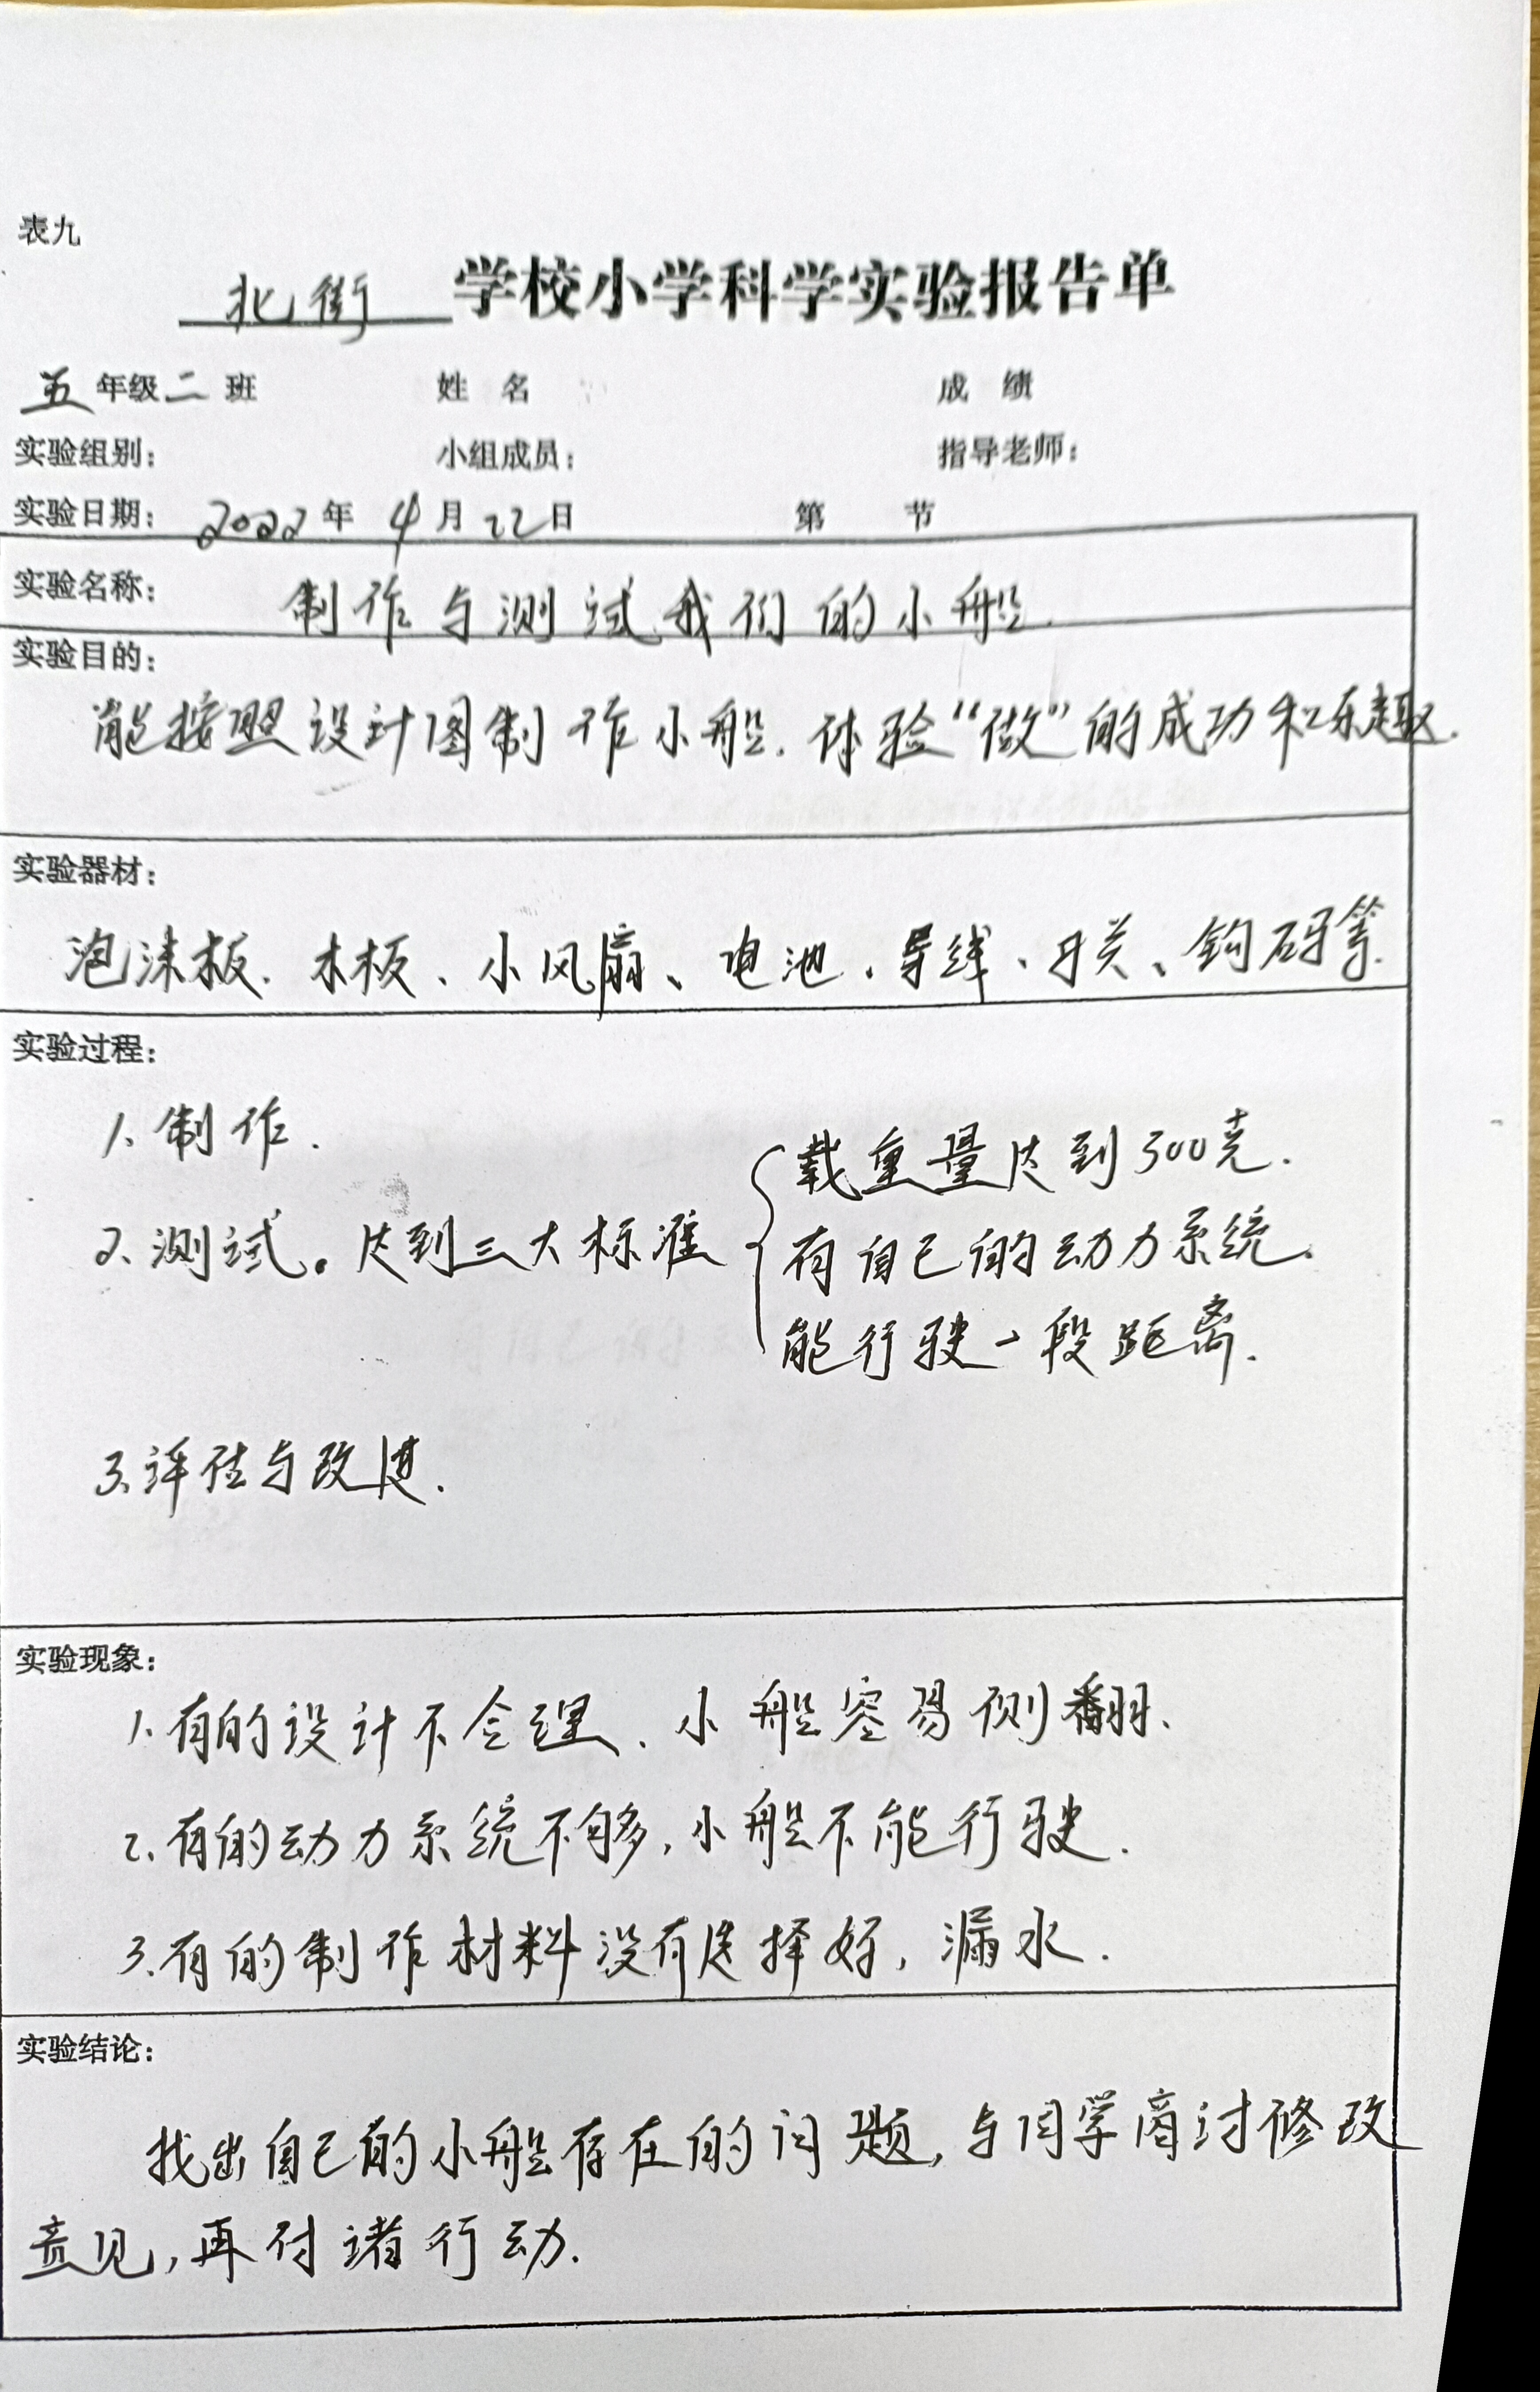 表九
北街学校小学科学实验报告单
五年级二班 姓 名 成 绩
实验组别： 小组成员： 指导老师：
实验日期： 2022年 4月 22日 第 节
实验名称： 制作与测试我们的小船.
实验目的：
能按照设计图制作小船. 体验“做”的成功和乐趣.
实验器材：
泡沫板、木板、小风扇、电池、导线、开关、钩码等.
实验过程：
1、制作.
2、测试。达到三大标准
载重量达到500克.
有自己的动力系统.
能行驶一段距离.
3、评估与改进.
实验现象：
1、有的设计不合理、小船容易侧翻、
2、有的动力系统不够,小船不能行驶.
3、有的制作材料没有选择好,漏水.
实验结论：
找出自己的小船存在的问题,与同学商讨修改
意见,再付诸行动.